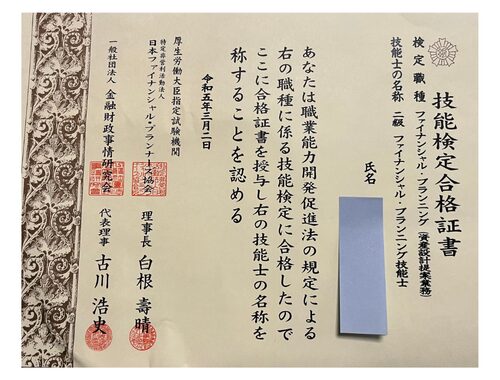 技能検定合格証書
検定職種 ファイナンシャル・プランニング(資産設計提案業務)
技能士の名称 二級 ファイナンシャル・プランニング技能士
氏名
あなたは職業能力開発促進法の規定による
右の職種に係る技能検定に合格したので
ここに合格証書を授与し右の技能士の名称を
称することを認める
令和五年三月二日
厚生労働大臣指定試験機関
特定非営利活動法人
日本ファイナンシャル・プランナーズ協会
理事長 白根壽晴
一般社団法人 金融財政事情研究会
代表理事 古川浩史